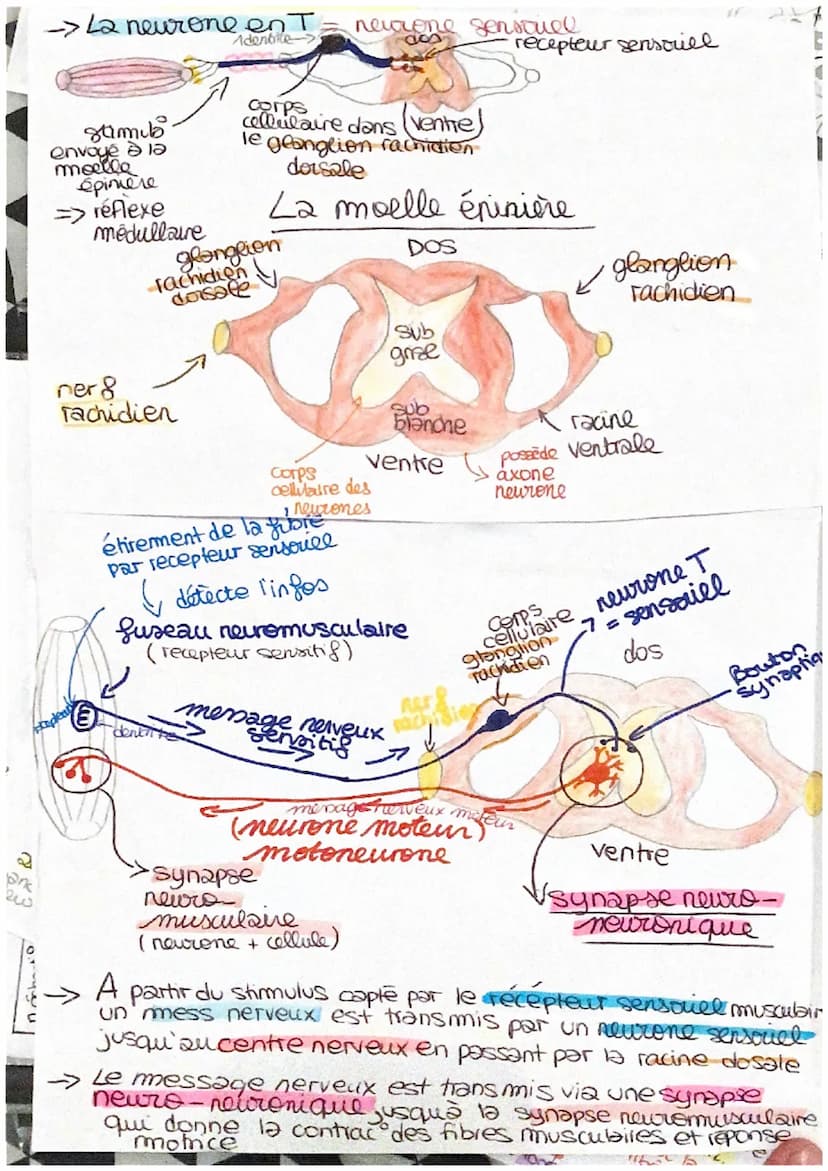 → La neurone en T = neurone sensoriel
dos
recepteur sensoriel
corps
cellulaire dans (ventre)
le glanglion rachidien
dorsale
stimulº
envoyé à la
moelle
épinière
=> réflexe
médullaire
La moelle épinière
DOS
glanglion
rachidien
dorsale
glanglion
rachidien
sub
grise
nerf
rachidien
sub
blanche
racine
ventrale
ventre
possède
axone
neurone
corps
cellulaire des
neurones
étirement de la fibre
par recepteur sensoriel
détecte l'infos
fuseau neuromusculaire
(recepteur sensitif)
corps
cellulaire
glanglion
rachidien
neurone T
= sensoriel
dos
Bouton
nerf
rachidien
message nerveux
sensitif
message nerveux moteur
(neurone moteur)
motoneurone
ventre
synapse
neuro-
musculaire
(neurone + cellule)
synapse neuro-
neuronique
→ A partir du stimulus capté par le récépteur sensoriel musculair
un mess nerveux est transmis par un neurone sensoriel
jusqu'au centre nerveux en passant par la racine dosale
→ Le message nerveux est transmis via une synapse
neuro-neuronique jusquà la synapse neuromusculaire
qui donne la contracº des fibres musculaiies et réponse
motrice